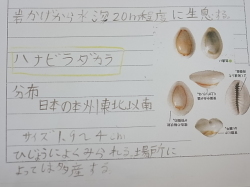 岩かげから水深20m程度に生息する
ハナビラダカラ
分布
日本の本州東北以南
サイズ 大きくて4cm
ひじょうによくみられる場所に
よっては多産する